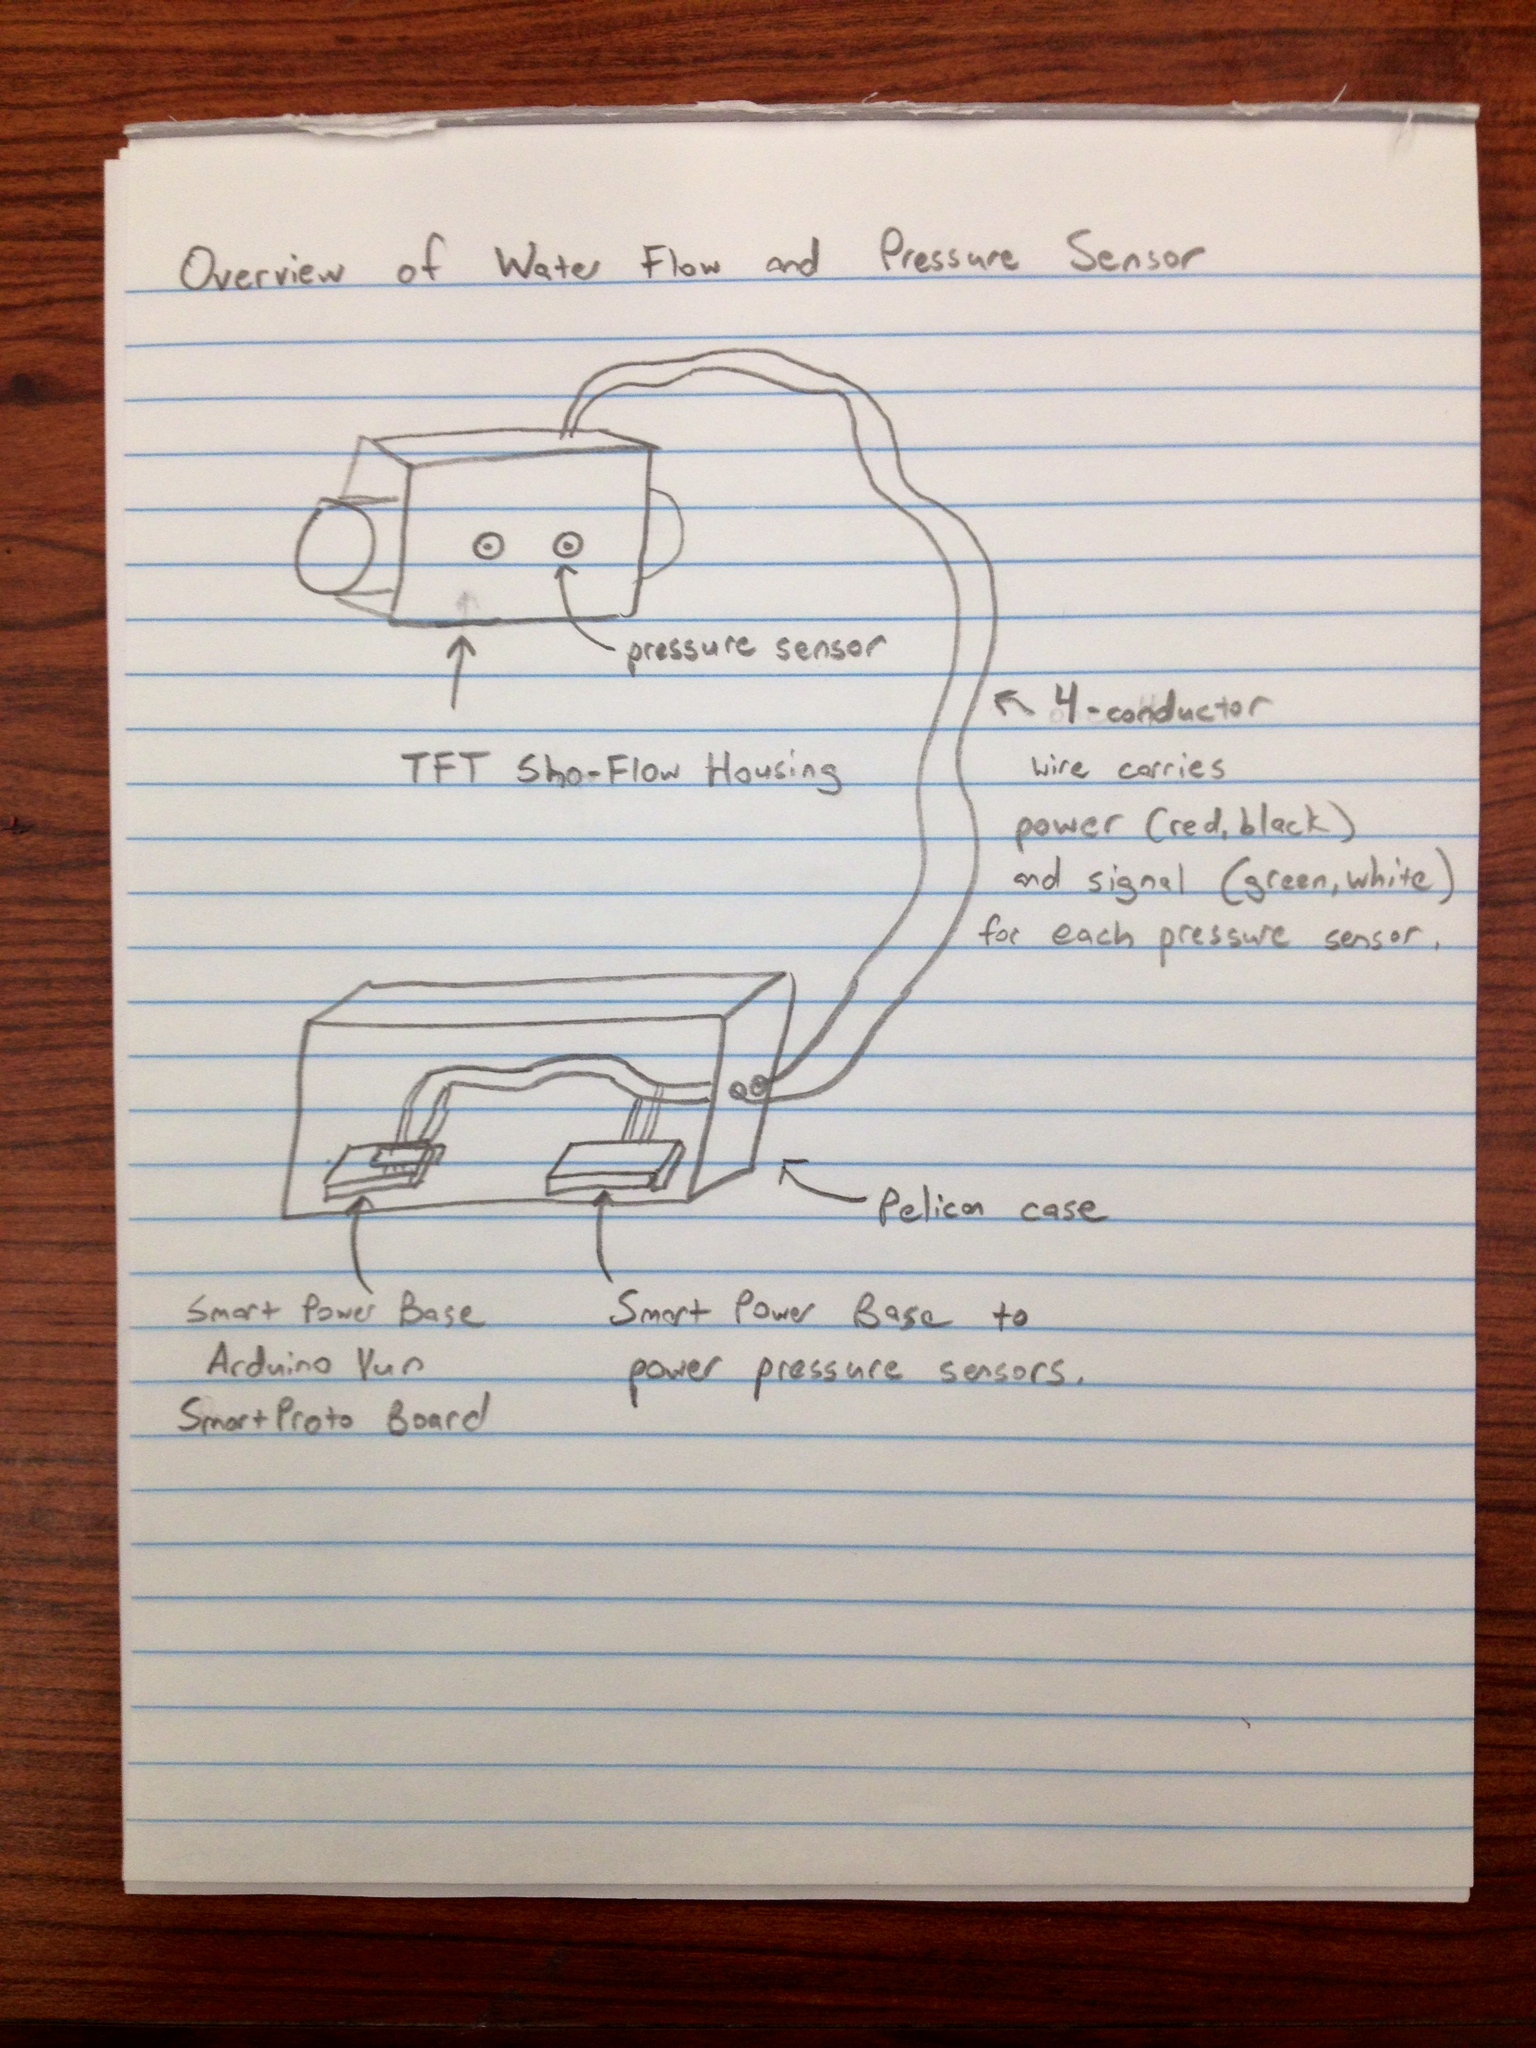 Overview of Water Flow and Pressure Sensor
pressure sensor
TFT Sho-Flow Housing
4-conductor
wire carries
power (red, black)
and signal (green, white)
for each pressure sensor.
Pelican case
Smart Power Base
Arduino Yun
SmartProto Board
Smart Power Base to
power pressure sensors.